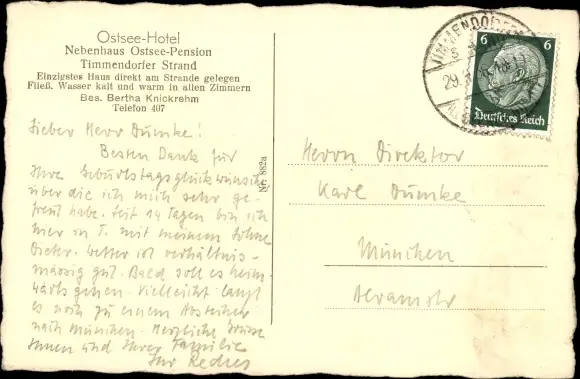 Ostsee-Hotel
Nebenhaus Ostsee-Pension
Timmendorfer Strand
Einzigstes Haus direkt am Strande gelegen
Fließ. Wasser kalt und warm in allen Zimmern
Bes. Bertha Knickrehm
Telefon 407
Lieber Herr Dumke!
Besten Dank für
Ihre Geburtstagsglückwünsche
über die ich mich sehr ge-
freut habe. Seit 14 Tagen bin ich
hier in T. mit meinem Sohne
Dieter. Wetter ist verhältnis-
mässig gut. Bald soll es heim-
wärts gehen. Vielleicht langt
es noch zu einem Abstecher
nach München. Herzliche Grüsse
Ihnen und Ihrer Familie
Ihr
Nr. 882a
TIMMENDORFER
29.
6 6
Deutsches Reich
Herrn Direktor
Karl Dumke
München